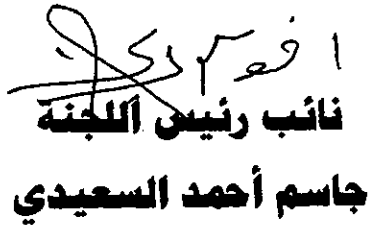 نائب رئيس اللجنة
جاسم أحمد السعيدي